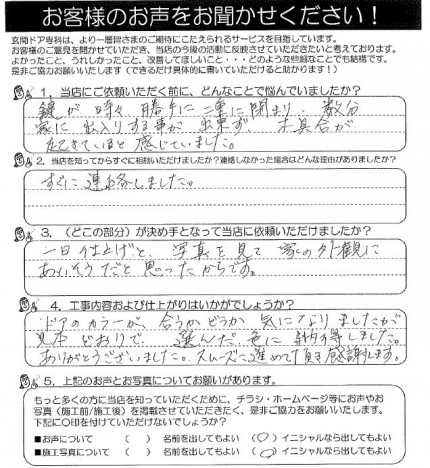 お客様のお声をお聞かせください！
玄関ドア専科は、より一層皆さまのご期待にこたえられるサービスを目指しています。
お客様のご意見を聞かせていただき、当店の今後の活動に反映させていただきたいと考えております。
よかったこと、うれしかったこと、改善してほしいこと・・・どのような些細なことでも結構です。
是非ご協力お願いいたします（できるだけ具体的に書いていただけると助かります！）
1．当店にご依頼いただく前に、どんなことで悩んでいましたか？
鍵が時々勝手に二重に閉まり、数分
家に出入りする事が出来ず、不具合が
起きていると感じていました。
2．当店を知ってからすぐに相談いただけましたか？連絡しなかった場合はどんな理由がありましたか？
すぐに連絡しました。
3．（どこの部分）が決め手となって当店に依頼いただけましたか？
一日仕上げと、写真を見て家の外観に
あいそうだと思ったからです。
4．工事内容および仕上がりはいかがでしょうか？
ドアのカラーが、合うかどうか気になりましたが
見本どおりで、選んだ色に納得しました。
ありがとうございました。スムーズに進めて頂き感謝します。
5．上記のお声とお写真についてお願いがあります。
もっと多くの方に当店を知っていただくために、チラシ・ホームページ等にお声やお
写真（施工前/施工後）を掲載させていただきたく、是非ご協力をお願いいたします。
下記に〇印を付けていただけないでしょうか？
■お声について （ ） 名前を出してもよい （〇） イニシャルなら出してもよい
■施工写真について （ ） 名前を出してもよい （〇） イニシャルなら出してもよい